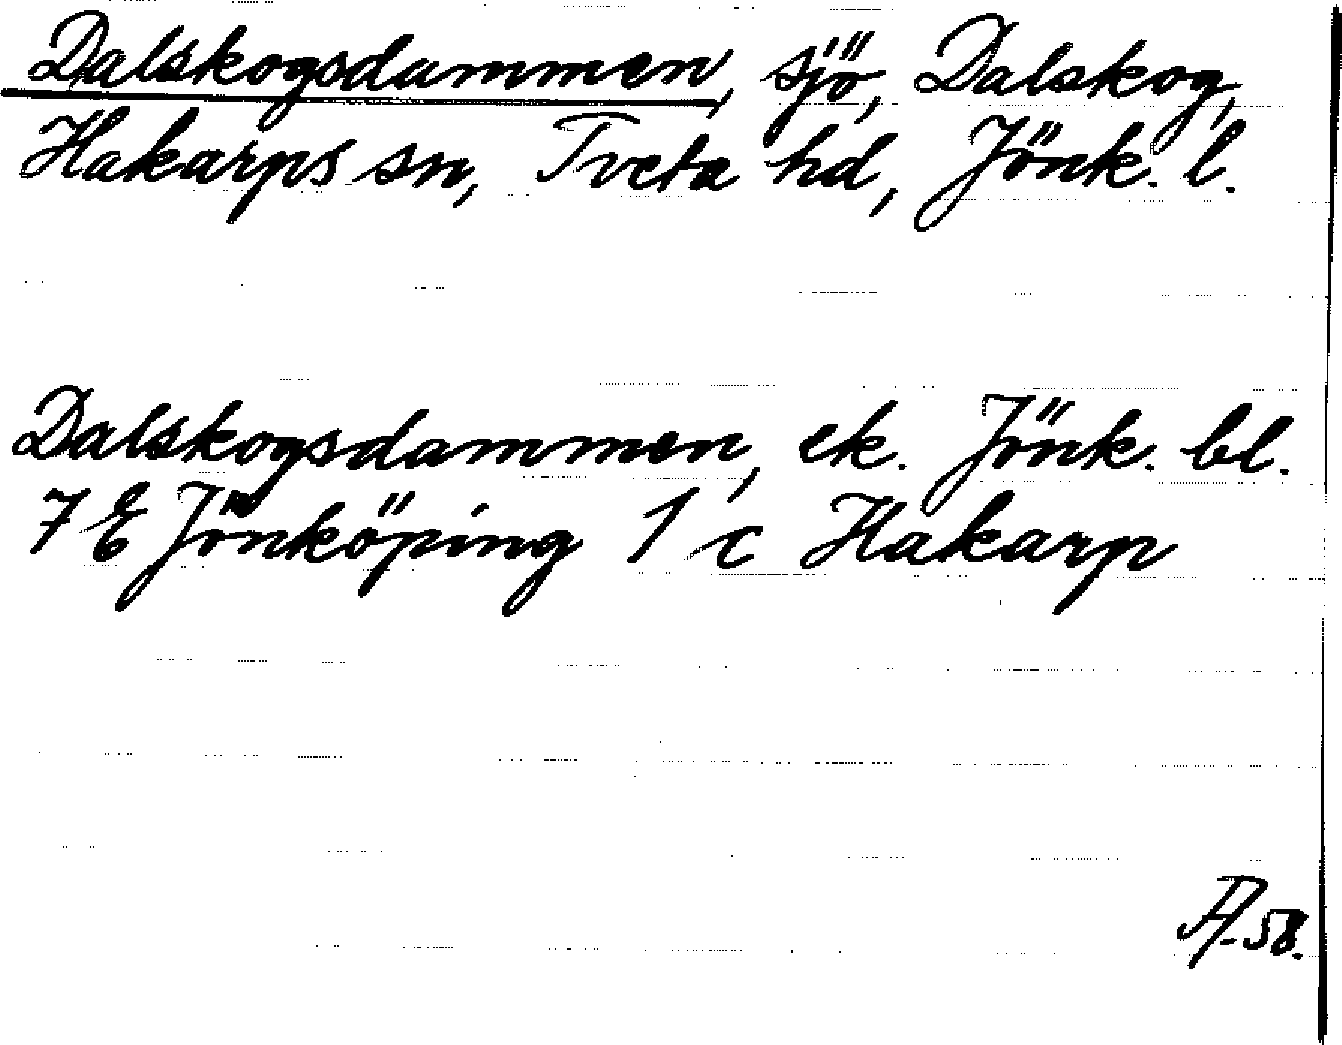 Dalskogsdammen, sjö, Dalskog,
Hakarps sn, Tveta hd, Jönk. l.
Dalskogsdammen, ek. Jönk. bl.
7 E Jönköping 1 c Hakarp